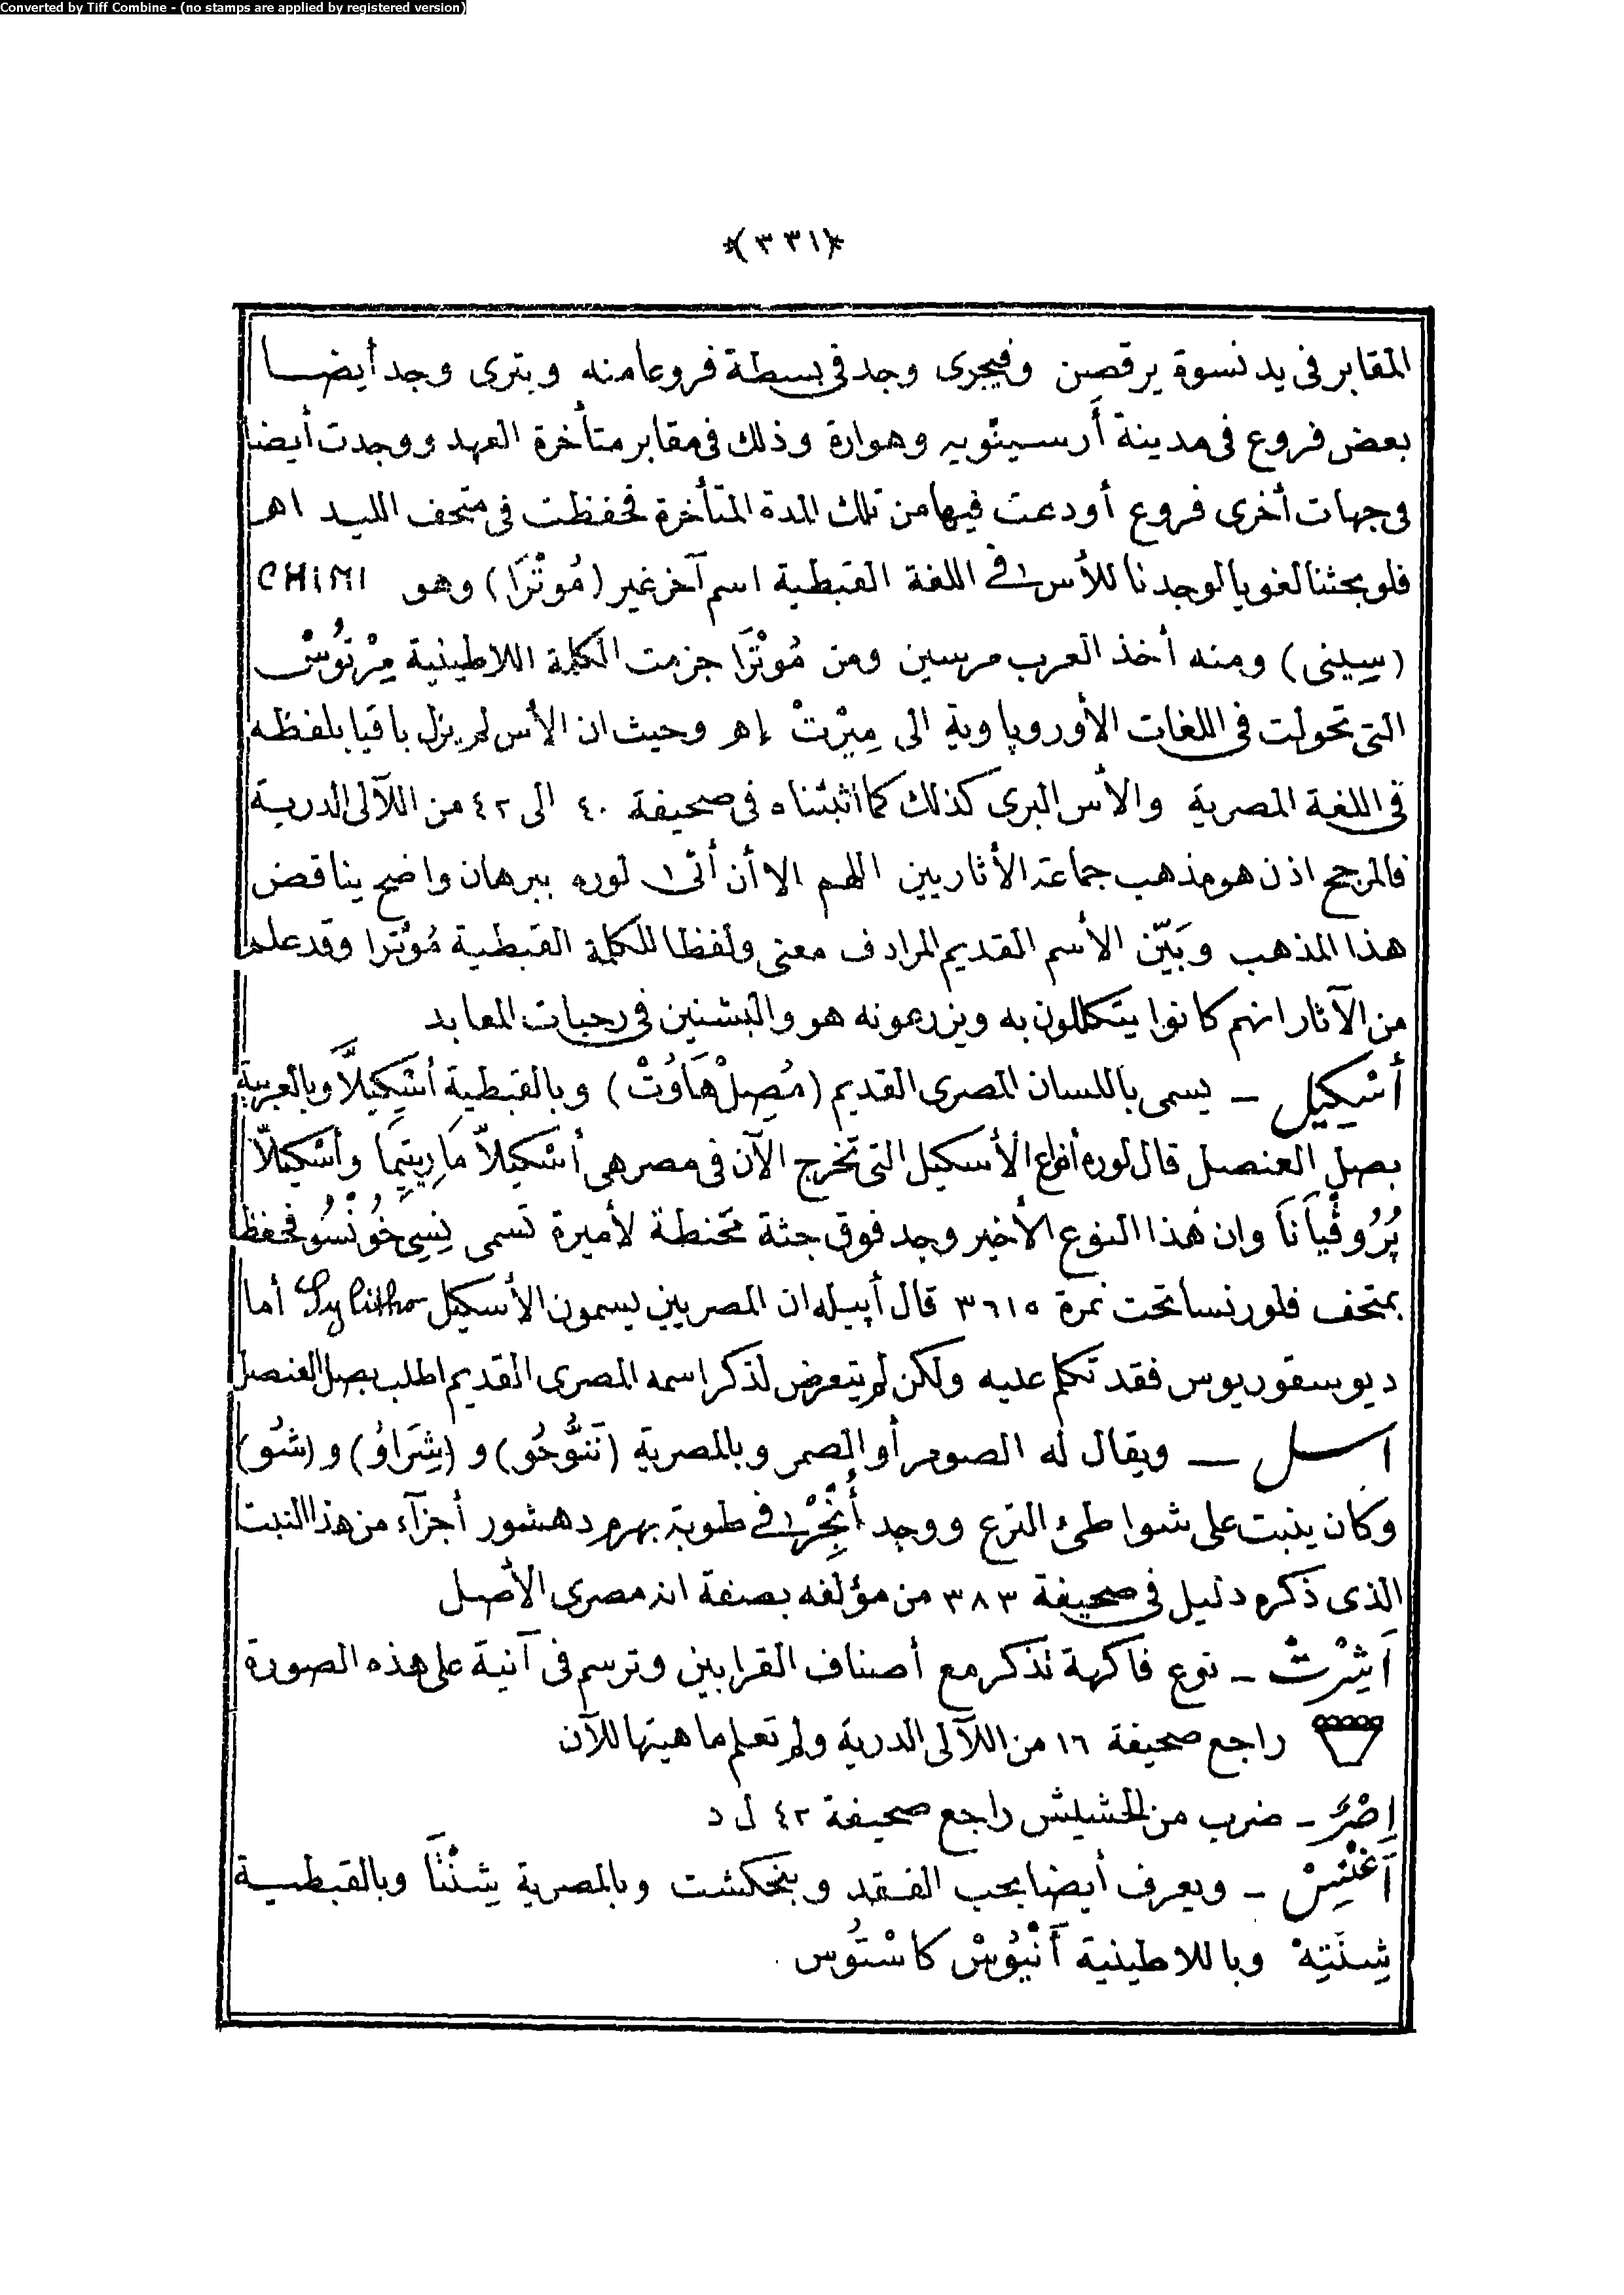 Converted by Tiff Combine - (no stamps are applied by registered version)
﴿٣٣١﴾
المقابر فى يد نسوة يرقصن وفيجرى وجد فى بسطة فروعا منه وبترى وجد أيضا
بعض فروع فى مدينة أرسينويه وهوارة وذلك فى مقابر متأخرة العهد ووجدت أيضا
فى جهات أخرى فروع أودعت فيها من تلك المدة المتأخرة فحفظت فى متحف الليد اهـ
فلو بحثنا لغويا لوجدنا للأس فى اللغة القبطية اسم آخر غير (مُوتْرَا) وهو CHIMI
(سِينى) ومنه أخذ العرب مرسين ومن مُوتْرَا جزمت الكلمة اللاطينية مِرْتُوسْ
التى تحولت فى اللغات الأوروپاوية الى مِيرْتْ إهـ وحيث ان الأس لم يزل باقيا بلفظه
فى اللغة المصرية والأس البرى كذلك كما أثبتناه فى صحيفة ٤٠ الى ٤٢ من اللآلى الدرية
فالمرجح اذن هو مذهب جماعة الأثاريين اللهم الا أن أتى لوره ببرهان واضح يناقض
هذا المذهب وبَيّن الأسم القديم المرادف معنى ولفظا للكلمة القبطية مُوتْرا وقد علم
من الآثار انهم كانوا يتكللون به ويزرعونه هو والبشنين فى رحبات المعابد
أسْكِيل – يسمى باللسان المصرى القديم (مُصِلْ هَاوُتْ) وبالقبطية أسْكِيلاَّ وبالعربية
بصل العنصل قال لوره أنواع الأسكيل التى تخرج الآن فى مصر هى أسْكيلاّ مَارِيتِيمَا وأسْكيلاّ
پُرُوڤْيَانَا وان هذا النوع الأخير وجد فوق جثة محنطة لأميرة تسمى نِسِى خُونْسُو فحفظ
بمتحف فلورنسا تحت نمرة ٣٦١٥ قال أپيله ان المصريين يسمون الأسكيل أما
ديوسقوريوس فقد تكلم عليه ولكن لم يتعرض لذكر اسمه المصرى القديم اطلب بصل العنصل
اسل – ويقال له الصومر أو الصمر وبالمصرية (نَنُّوحُو) و (شِرَاوُ) و (شُو)
وكان ينبت على شواطئ الترع ووجد أُنْجِرْ فى طوبة بهرم دهشور أجزآء من هذا النبت
الذى ذكره دليل فى صحيفة ٣٨٣ من مؤلفه بصفة انه مصرى الأصل
اَشِرْتْ – نوع فاكهة تذكر مع أصناف القرابين وترسم فى آنية على هذه الصورة
راجع صحيفة ١٦ من اللآلى الدرية ولم تعلم ماهيتها للآن
اِصْرُ – ضرب من الحشيش راجع صحيفة ٤٢ ل د
اَغْنِسْ – ويعرف أيضا بحب الفقد وبنجكشت وبالمصرية شِنْتَا وبالقبطية
شِنَتِهْ وباللاطينية أَنْيُوسْ كاسْتُوس